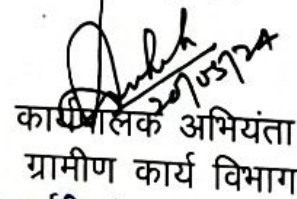 20/05/24
कार्यपालक अभियंता
ग्रामीण कार्य विभाग